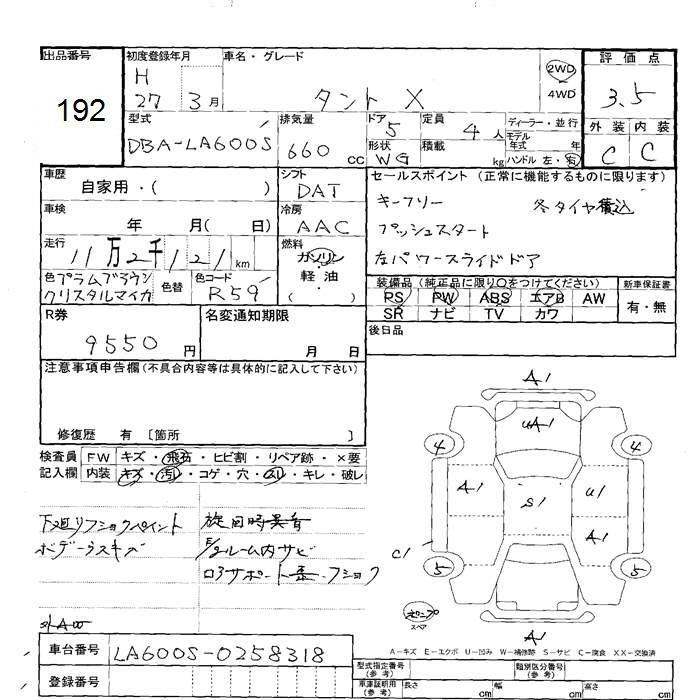 出品番号
192
初度登録年月
H
27 3月
車名・グレード
タント X
2WD
4WD
評価点
3.5
外装 内装
C C
型式
DBA-LA600S
排気量
660 cc
ドア
5
形状
WG
定員
4 人
積載
kg
ディーラー・並行
モデル
年式 年
ハンドル 左・右
車歴
自家用・( )
シフト
DAT
セールスポイント (正常に機能するものに限ります)
キーフリー 冬タイヤ積込
プッシュスタート
左パワースライドドア
車検
年 月( 日)
冷房
AAC
走行
11万2千121 km
燃料
ガソリン
軽・油
( )
色 プラムブラウン
クリスタルマイカ
色替
色コード
R59
装備品 (純正品に限り○をつけてください)
PS PW ABS エアB AW
SR ナビ TV カワ
新車保証書
有・無
R券
9550 円
名変通知期限
月 日
後日品
注意事項申告欄(不具合内容等は具体的に記入して下さい)
修復歴 有 〔箇所 〕
検査員
記入欄
FW キズ・飛石・ヒビ割・リペア跡・×要
内装 キズ・汚レ・コゲ・穴・スレ・キレ・破レ
下廻リフショクペイント
ボデーラスキズ
A1
uA1
4 4
A1 S1 u1
A1
C1
5 5
スペア
A1
A-キズ E-エクボ U-凹み W-補修跡 S-サビ C-腐食 XX-交換済
車台番号
LA600S-0258318
登録番号
型式指定番号
(参考)
類別区分番号
(参考)
車庫証明用
(参考)
長さ cm 幅 cm 高さ cm